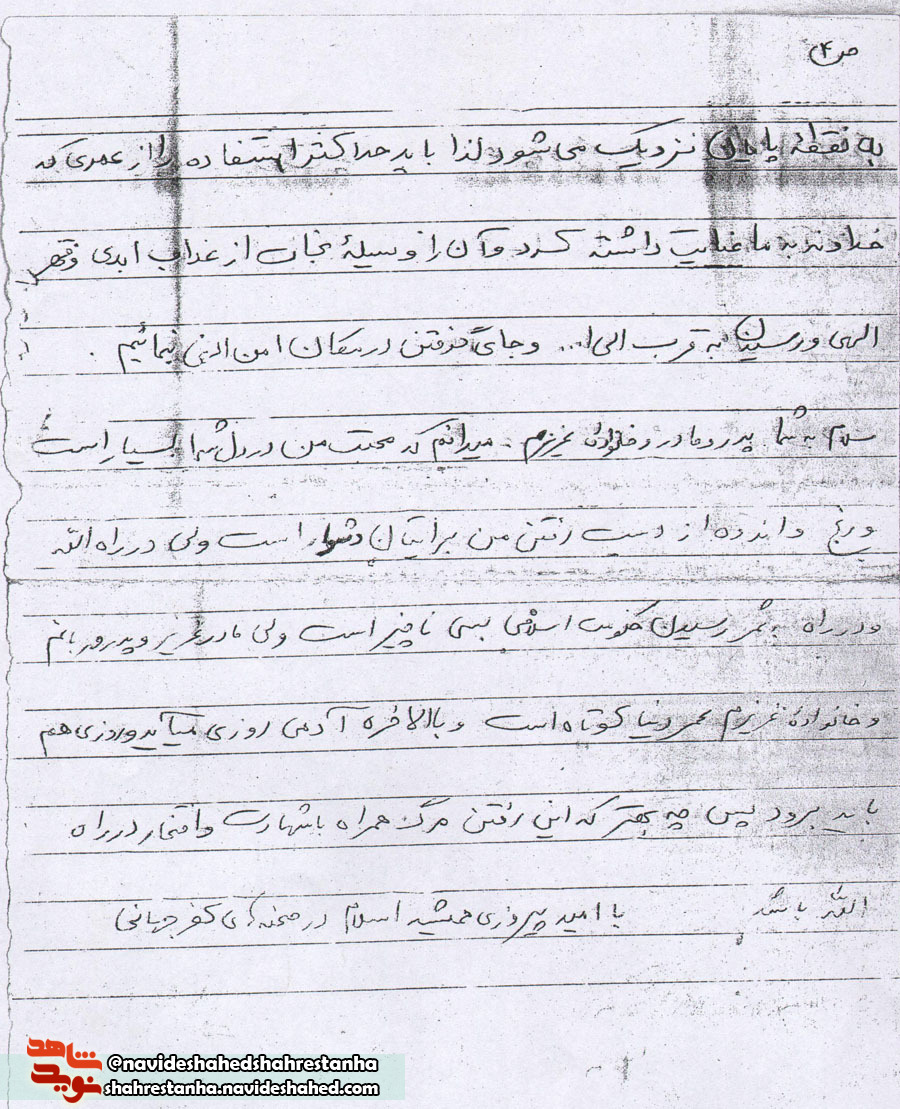 ص ۴
به نقطهٔ پایان نزدیک می شود لذا باید حداکثر استفاده را از عمری که
خداوند به ما عنایت داشته کرد و آن را وسیلهٔ نجات از عذاب ابدی و قهر
الهی و رسیدن به قرب الی ا... و جای گرفتن در مکان امن الهی نمائیم .
سلام به شما پدر و مادر و خانوادهٔ عزیزم . میدانم که محبت من در دل شما بسیار است
و رنج و اندوه از دست رفتن من برایتان دشوار است ولی در راه الله
و در راه به ثمر رسیدن حکومت اسلامی بسی ناچیز است ولی مادر عزیز و پدرم
و خانوادهٔ عزیزم عمر دنیا کوتاه است و بالاخره آدمی روزی میآید و روزی هم
باید برود پس چه بهتر که این رفتن مرگ همراه با شهادت و افتخار در راه
الله باشد با امید پیروزی همیشه اسلام در صحنه های کفر جهانی
نوید شاهد
@navideshahedshahrestanha
shahrestanha.navideshahed.com